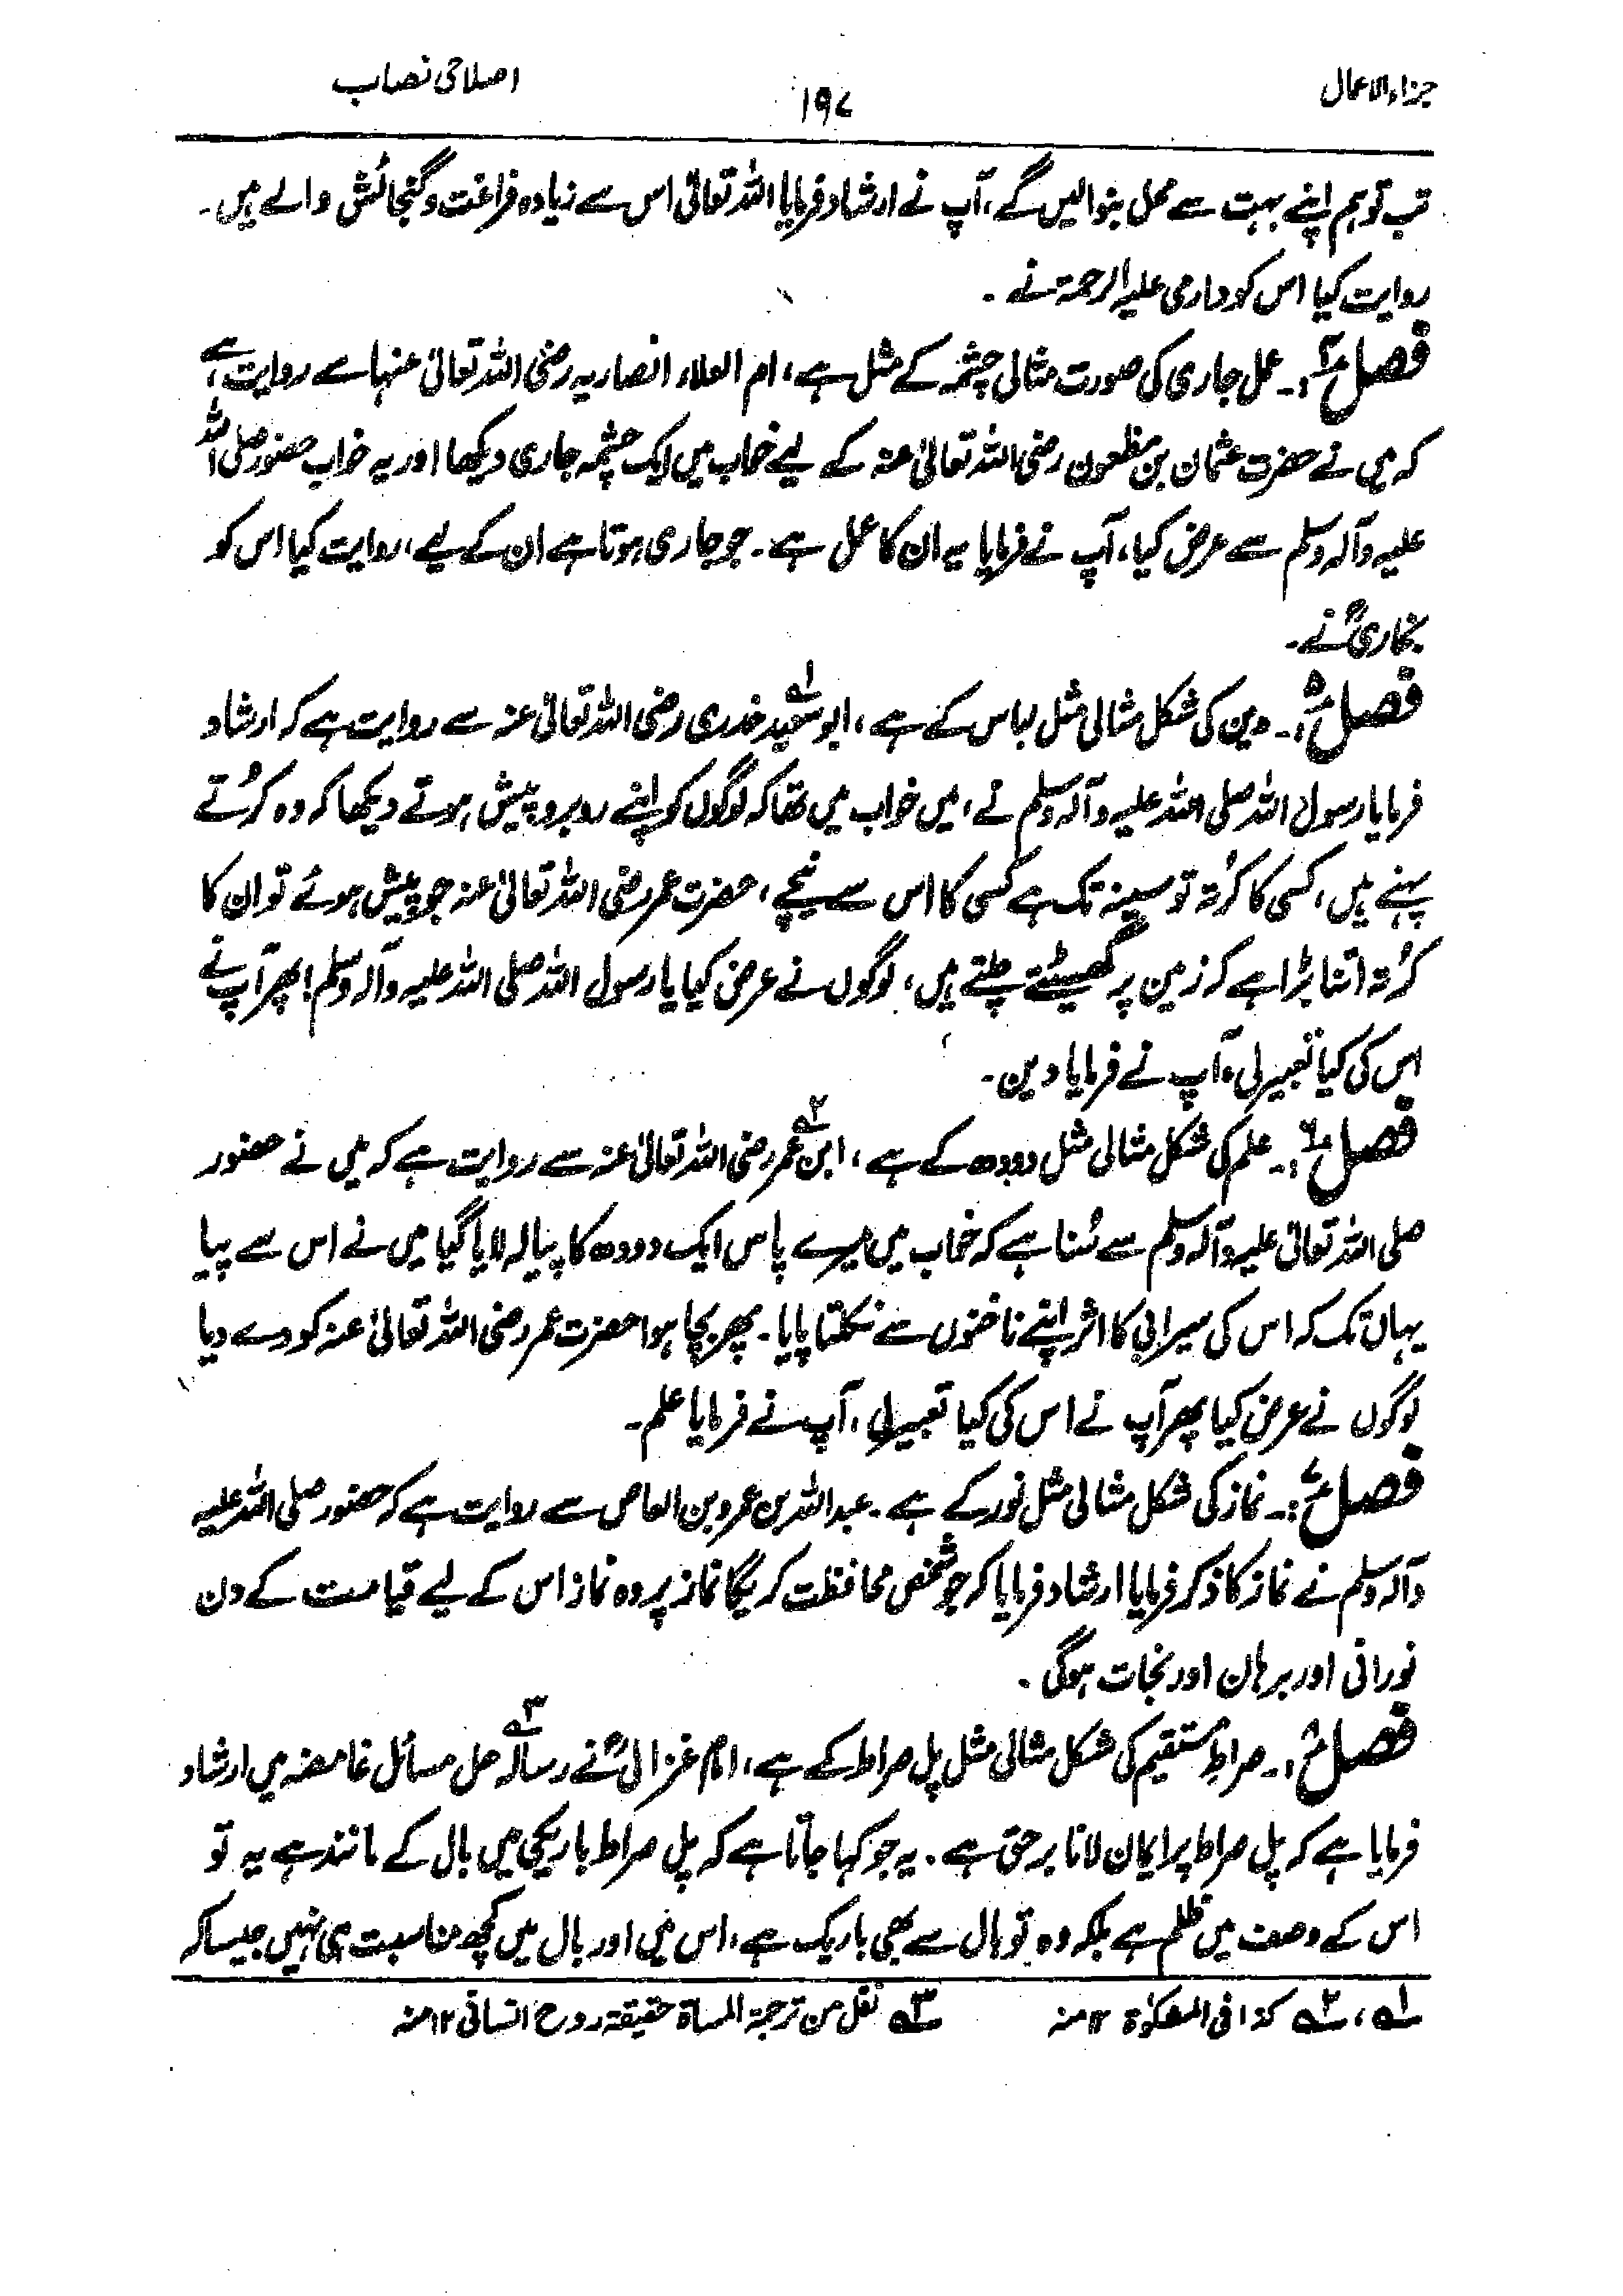 جزاء الاعمال
۱۹۷
اصلاحی نصاب
تب تو ہم اپنے بہت سے محل بنوالیں گے، آپ نے ارشاد فرمایا اللہ تعالیٰ اس سے زیادہ فراغت و گنجائش والے ہیں۔
روایت کیا اس کو دارمی علیہ الرحمۃ نے۔
فصل ۴:۔ عمل جاری کی صورت مثالی چشمہ کے مثل ہے، ام العلاء انصاریہ رضی اللہ تعالیٰ عنہا سے روایت ہے
کہ میں نے حضرت عثمان بن مظعون رضی اللہ تعالیٰ عنہ کے لیے خواب میں ایک چشمہ جاری دیکھا اور یہ خواب حضور صلی اللہ
علیہ وآلہ وسلم سے عرض کیا، آپ نے فرمایا یہ ان کا عمل ہے۔ جو جاری ہوتا ہے ان کے لیے، روایت کیا اس کو
بخاریؒ نے۔
فصل ۵:۔ دین کی شکل مثالی مثل لباس کے ہے، ابو سعید۱؎ خدری رضی اللہ تعالیٰ عنہ سے روایت ہے کہ ارشاد
فرمایا رسول اللہ صلی اللہ علیہ وآلہ وسلم نے، میں خواب میں تھا کہ لوگوں کو اپنے روبرو پیش ہوتے دیکھا کہ وہ کُرتے
پہنے ہیں، کسی کا کُرتہ تو سینہ تک ہے کسی کا اس سے نیچے، حضرت عمر رضی اللہ تعالیٰ عنہ جو پیش ہوئے تو ان کا
کُرتہ اتنا بڑا ہے کہ زمین پر گھسیٹتے چلتے ہیں، لوگوں نے عرض کیا یا رسول اللہ صلی اللہ علیہ وآلہ وسلم! پھر آپ نے
اس کی کیا تعبیر لی، آپ نے فرمایا دین۔
فصل ۶:۔ علم کی شکل مثالی مثل دودھ کے ہے، ابن عمر۲؎ رضی اللہ تعالیٰ عنہ سے روایت ہے کہ میں نے حضور
صلی اللہ تعالیٰ علیہ وآلہ وسلم سے سُنا ہے کہ خواب میں میرے پاس ایک دودھ کا پیالہ لایا گیا میں نے اس سے پیا
یہاں تک کہ اس کی سیرابی کا اثر اپنے ناخنوں سے نکلتا پایا۔ پھر بچا ہوا حضرت عمر رضی اللہ تعالیٰ عنہ کو دے دیا
لوگوں نے عرض کیا پھر آپ نے اس کی کیا تعبیر لی، آپ نے فرمایا علم۔
فصل ۷:۔ نماز کی شکل مثالی مثل نور کے ہے۔ عبداللہ بن عمرو بن العاص سے روایت ہے کہ حضور صلی اللہ علیہ
وآلہ وسلم نے نماز کا ذکر فرمایا ارشاد فرمایا کہ جو شخص محافظت کریگا نماز پر وہ نماز اس کے لیے قیامت کے دن
نورانی اور برہان اور نجات ہوگی۔
فصل ۸:۔ صراطِ مُستقیم کی شکل مثالی مثل پل صراط کے ہے، امام غزالیؒ نے رسالہ۳؎ حل مسائل غامضہ میں ارشاد
فرمایا ہے کہ پل صراط پر ایمان لانا برحق ہے۔ یہ جو کہا جاتا ہے کہ پل صراط باریکی میں بال کے مانند ہے یہ تو
اس کے وصف میں ظلم ہے بلکہ وہ تو بال سے بھی باریک ہے، اس میں اور بال میں کچھ مناسبت ہی نہیں جیسا کہ
۱؎، ۲؎ کذا فی المشکوٰۃ ۱۲ منہ
۳؎ نقل من ترجمۃ المسماۃ حقیقۃ روح انسانی ۱۲ منہ